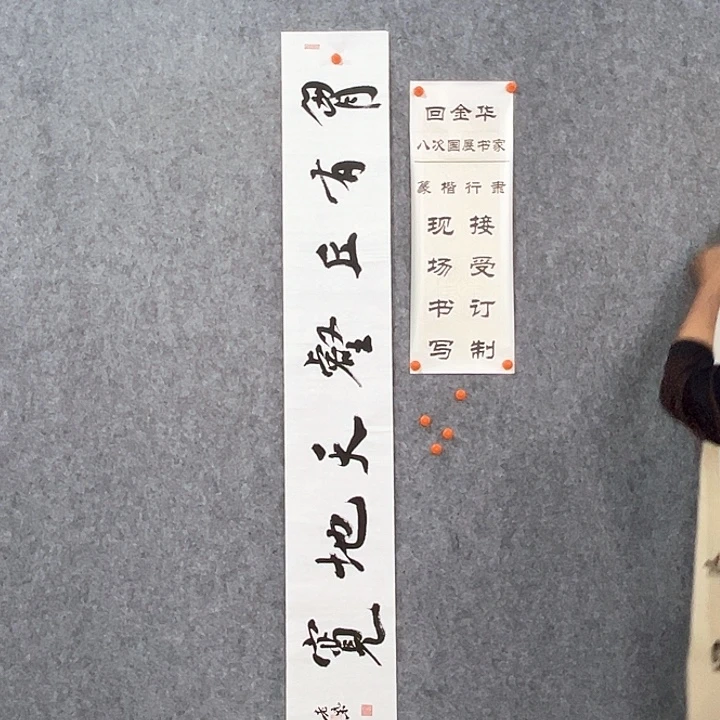 胸有丘壑天地寬
回金华
八次国展书家
篆楷行隶
现场书写
接受订制